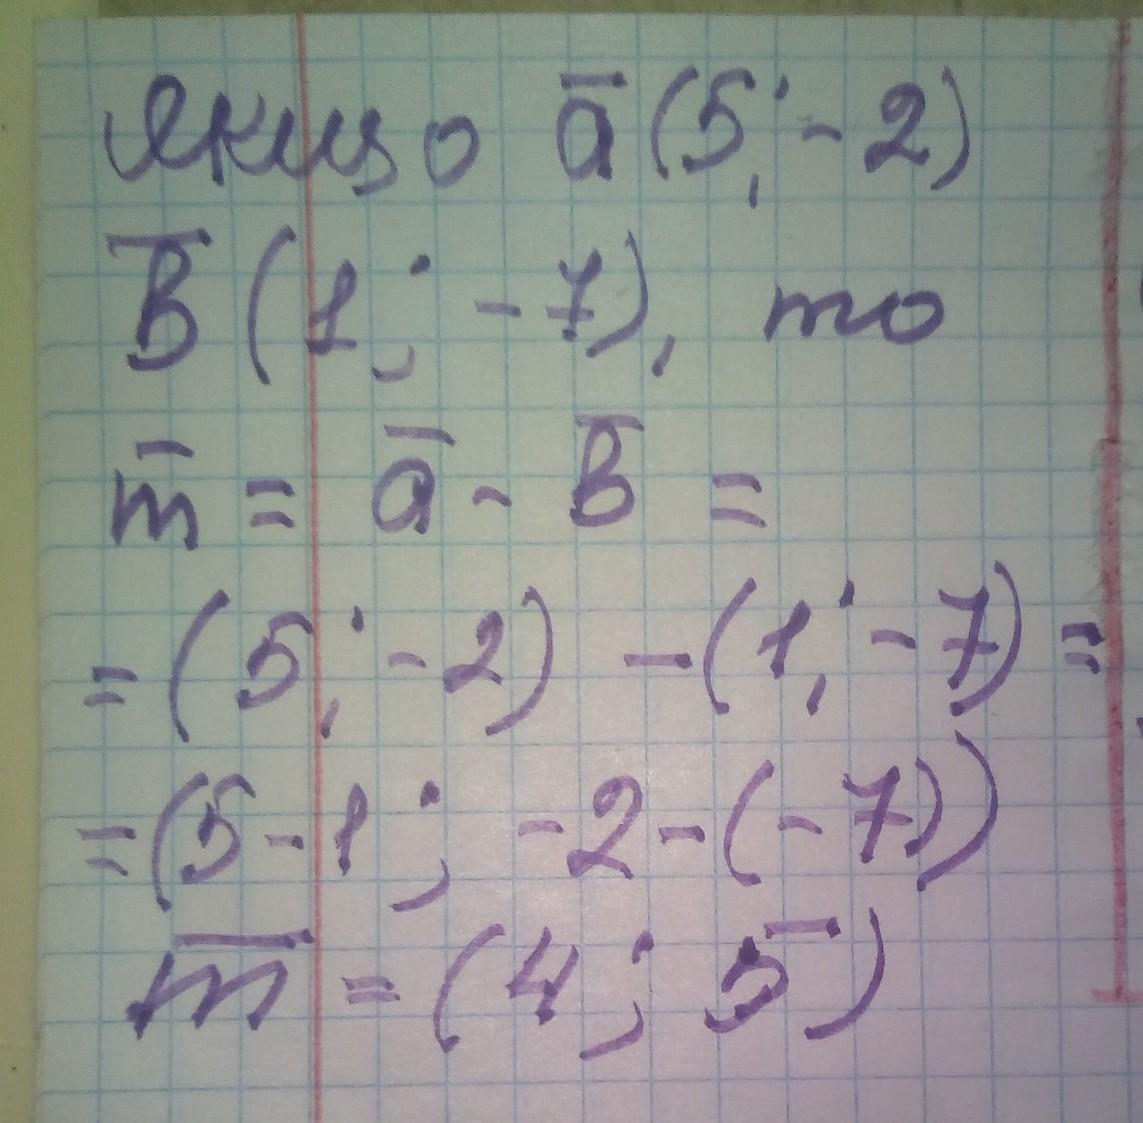 Якщо a̅ (5; -2)
B̅ (1; -7), то
m̅ = a̅ - B̅ =
= (5; -2) - (1; -7) =
= (5-1; -2-(-7))
m̅ = (4; 5)